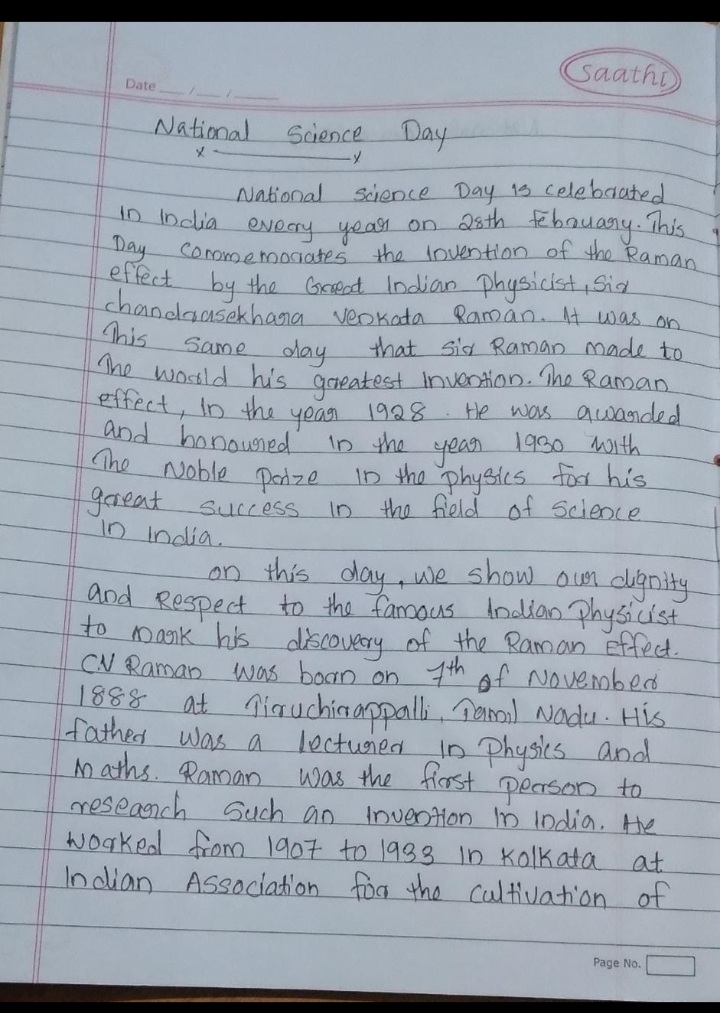 saathi
Date __/__/____
National Science Day
x ————— y
National science Day is celebrated
In India every year on 28th february. This
Day commemorates the Invention of the Raman
effect by the Great Indian physicist, Sir
chandrasekhara Venkata Raman. It was on
This same day that sir Raman made to
The world his greatest Invention. The Raman
effect, In the year 1928. He was awarded
and honoured In the year 1930 with
The Noble prize In the physics for his
great success In the field of Science
In India.
on this day, we show our dignity
and Respect to the famous Indian Physicist
to mark his discovery of the Raman Effect.
CV Raman was born on 7th of November
1888 at Tiruchirappalli, Tamil Nadu. His
father was a lecturer In Physics and
Maths. Raman was the first person to
research such an Invention In India. He
worked from 1907 to 1933 In Kolkata at
Indian Association for the cultivation of
Page No.